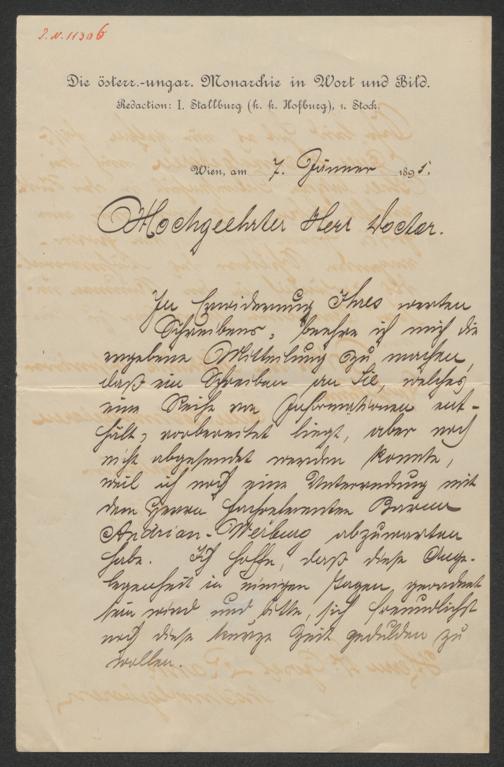 J. N. 11306
Die österr.-ungar. Monarchie in Wort und Bild.
Redaction: I. Stallburg (k. k. Hofburg), 1. Stock.
Wien, am 7. Jänner 1895.
Hochgeehrter Herr Doctor.
In Erwiderung Ihres werten
Schreibens, beehre ich mich die
ergebene Mitteilung zu machen,
daß ein Schreiben an Sie, welches
eine Reihe von Informationen ent-
hält, vorbereitet liegt, aber noch
nicht abgesendet werden konnte,
weil ich noch eine Unterredung mit
dem Herrn Fachreferenten Baron
Andrian-Werburg abzuwarten
habe. Ich hoffe, daß diese Ange-
legenheit in einigen Tagen geordnet
sein wird und bitte, sich freundlichst
noch diese kurze Zeit gedulden zu
wollen.